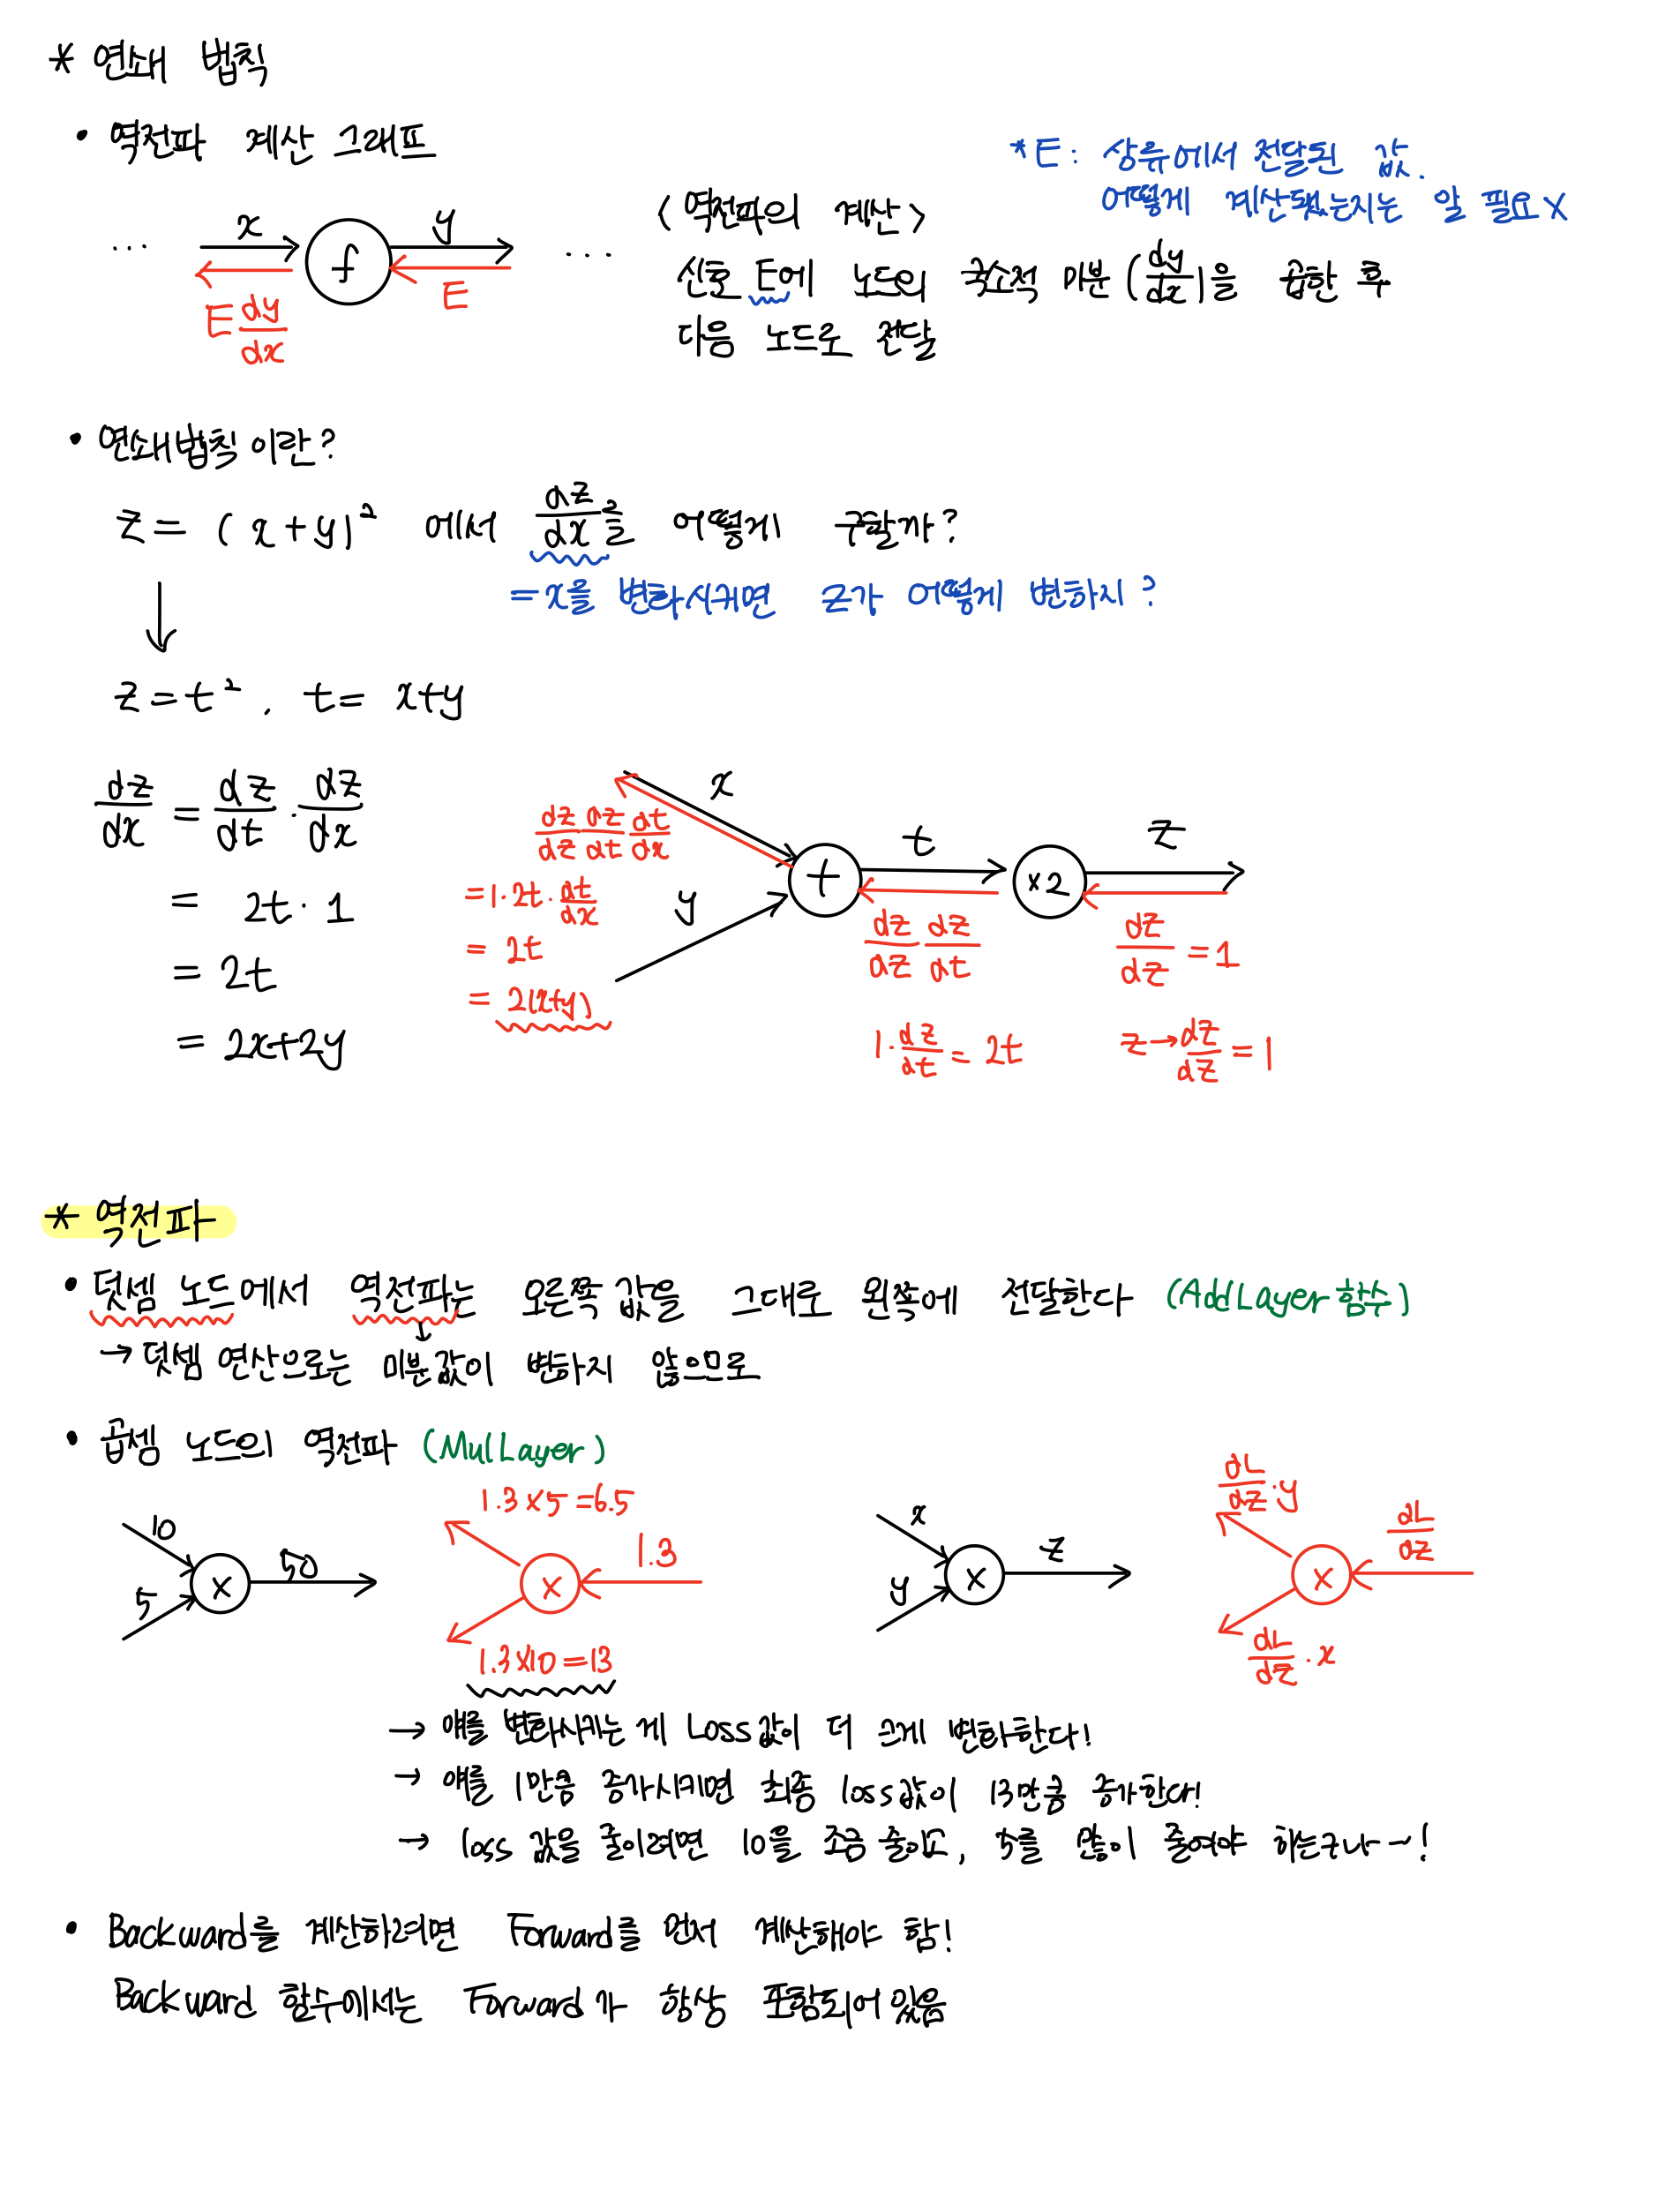 * 연쇄 법칙
• 역전파 계산 그래프
*E: 상류에서 전달된 값.
어떻게 계산됐는지는 알 필요X
... x f y ...
E dy/dx
E
<역전파의 계산>
신호 E에 노드의 국소적 미분 (dy/dx)을 곱한 후
다음 노드로 전달
• 연쇄법칙 이란?
z = (x+y)² 에서 dz/dx를 어떻게 구할까?
= x를 변화시키면 z가 어떻게 변하지?
↓
z=t², t= x+y
dz/dx = dz/dt · dz/dx
= 2t · 1
= 2t
= 2x+2y
x
y
+
t
×2
z
dz/dz dz/dt dt/dx
= 1·2t·dt/dx
= 2t
= 2(x+y)
dz/dz dz/dt
1·dz/dt = 2t
dz/dz = 1
z→dz/dz = 1
* 역전파
• 덧셈 노드에서 역전파는 오른쪽 값을 그대로 왼쪽에 전달한다 (AddLayer 함수)
→ 덧셈 연산으로는 미분값이 변하지 않으므로
• 곱셈 노드의 역전파 (MulLayer)
10
5
×
50
1.3×5=6.5
×
1.3
1.3×10=13
x
y
×
z
dL/dz·y
×
dL/dz
dL/dz·x
→ 얘를 변화시키는 게 Loss값이 더 크게 변화한다!
→ 얘를 1만큼 증가시키면 최종 loss값이 13만큼 증가한다!
→ loss 값을 줄이려면 10을 조금 줄이고, 5를 많이 줄여야 하는구나~!
• Backward를 계산하려면 Forward를 먼저 계산해야 함!
Backward 함수에서는 Forward가 항상 포함되어 있음